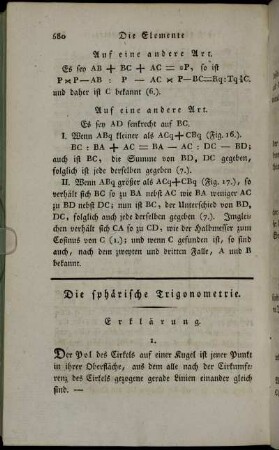 680 Die Elemente
Auf eine andere Art.
Es sey AB + BC + AC = 2P, so ist
P×P—AB : P — AC × P—BC=Bq:Tq½C,
und daher ist C bekannt (6.).
Auf eine andere Art.
Es sey AD senkrecht auf BC.
I. Wenn ABq kleiner als ACq+CBq (Fig. 16.).
BC : BA + AC = BA — AC : DC — BD;
auch ist BC, die Summe von BD, DC gegeben,
folglich ist jede derselben gegeben (7.).
II. Wenn ABq größer als ACq+CBq (Fig. 17.), so
verhält sich BC so zu BA nebst AC wie BA weniger AC
zu BD nebst DC; nun ist BC, der Unterschied von BD,
DC, folglich auch jede derselben gegeben (7.). Imglei-
chen verhält sich CA so zu CD, wie der Halbmesser zum
Cosinus von C (1.); und wenn C gefunden ist, so sind
auch, nach dem zweyten und dritten Falle, A und B
bekannt.
Die sphärische Trigonometrie.
Erklärung.
1.
Der Pol des Cirkels auf einer Kugel ist jener Punkt
in ihrer Oberfläche, aus dem alle nach der Cirkumfe-
renz des Cirkels gezogene gerade Linien einander gleich
sind. —